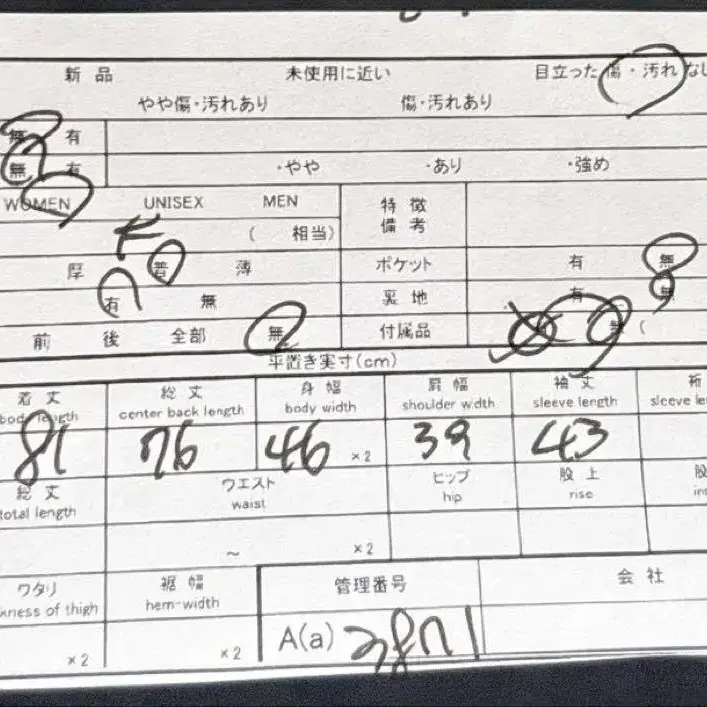 新品 未使用に近い 目立った傷・汚れなし
やや傷・汚れあり 傷・汚れあり
無 有
無 有 ・やや ・あり ・強め
WOMEN UNISEX MEN 特徴
備考
F ( 相当)
厚 普 薄 ポケット 有 無
有 無 裏地 有 無
前 後 全部 無 付属品 無 (
平置き実寸(cm)
着丈 総丈 身幅 肩幅 袖丈 裄
body length center back length body width shoulder width sleeve length sleeve le
81 76 46 ×2 39 43
総丈 ウエスト ヒップ 股上 股
total length waist hip rise in
~ ×2
ワタリ 裾幅 管理番号 会社
kness of thigh hem-width
×2 ×2 A(a)